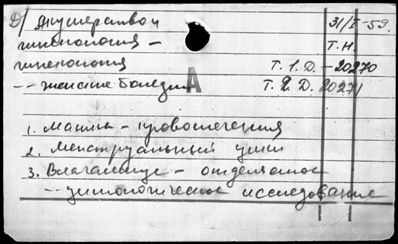 Д/ Акушерство и 31/I-59.
гинекология - Т.Н.
гинекология Т. 1. Д. - 20270
-- женские болезни А Т. 2. Д. 20271
1. Матка - кровотечения
2. Менструальный цикл
3. Влагалище - отделяемое
-- цитологическое исследование